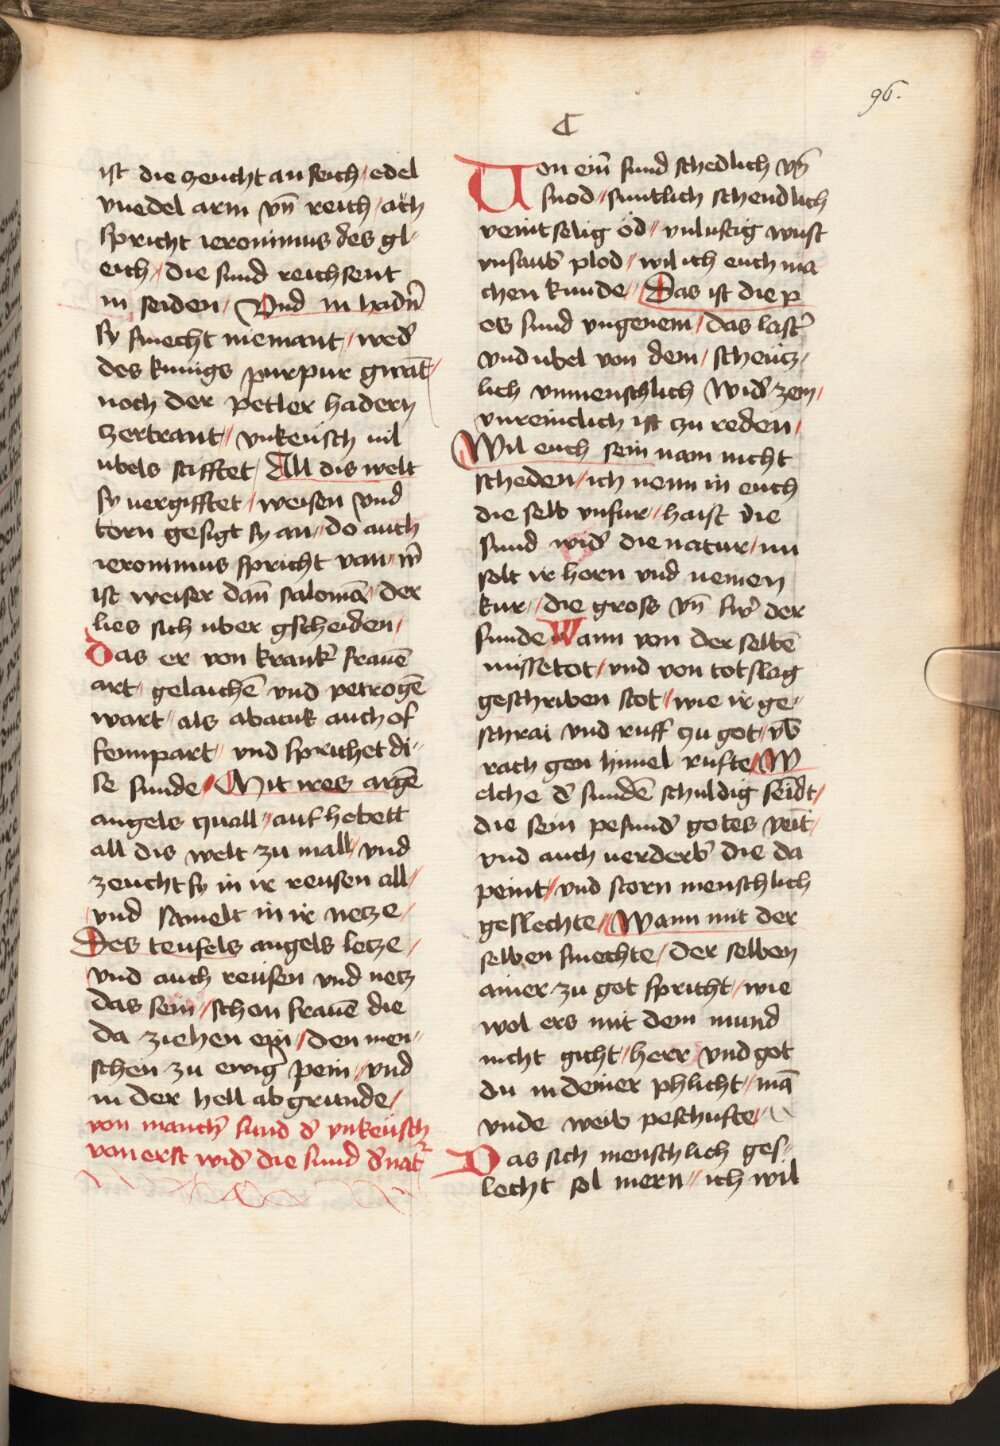 96.
C
ist die zeucht an seich / edel
vnedel arm vn̄ reich / ach
spricht ieronimus des gl-
eich / die sund reichsent
in seiden / Vnd in hadn̄
sy smecht niemant / wed̄
des kunigs purpur gwāt /
noch der petler hadern
zertrant / vnkeüsch uil
ubels stifftet / All dis welt
sy uergifftet / weisen vnd
torn gesigt sy an / do auch
ieronimus spricht van / w̄
ist weiser dan̄ salomō / der
lies sich uber gscheiden /
Das er von krank̄ frauē
art / gelaichē vnd petrogē
wart / als abacuk auch of
fempart / vnd sprichet di-
se sunde / Mit irez argē
angels quall / auf hebett
all dis welt zu mall / vnd
zeucht sy in ir reusen all /
vnd samelt in ir netze /
Des teufels angels letze /
vnd auch reüsen vnd netz
das sein / schon frauē die
da ziehen ein / den men-
schen zu ewig pein / vnd
in der hell abgrunde /
von manch̄ sund d̄ vnkeüsch
von erst wid̄ die sund d̄ nat̄
Uon ein̄ sund schedlich vn̄
snod / suntlich schendlich
veintselig öd / vnlustig wüst
vnsaub̄ plod / wil ich euch ma
chen kunde / Das ist die p
os sund vngenem / das last̄
vnd ubel von dem / scheütz-
lich vnmenschlich wid̄zem /
vnreinclich ist zu reden /
Wil euch sein nam nicht
scheden / ich nenn in euch
die selb vnfur / haist die
sund wid̄ die natur / nu
solt ir horn vnd nemen
kur / die gross vn̄ sw̄ der
sunde Wann von der selbē
missetot / vnd von totslag
geschriben stot / wie ir ge-
schrai vnd ruff zu got / vb̄
rach gen himel rufte / W
elche d̄ sundē schuldig seid̄t /
die sein pesund̄ gotes veīt /
vnd auch uerderb̄ die da
peint / vnd storn menschlich
geslechte / Wann mit der
selben smechte / der selben
ainer zu got spricht / wie
wol ers mit dem mund
nicht gicht / herr vnd got
du in deiner phlicht / mā
vnde weib peschufte /
Das sich menschlich ges-
lecht sol mern / ich wil